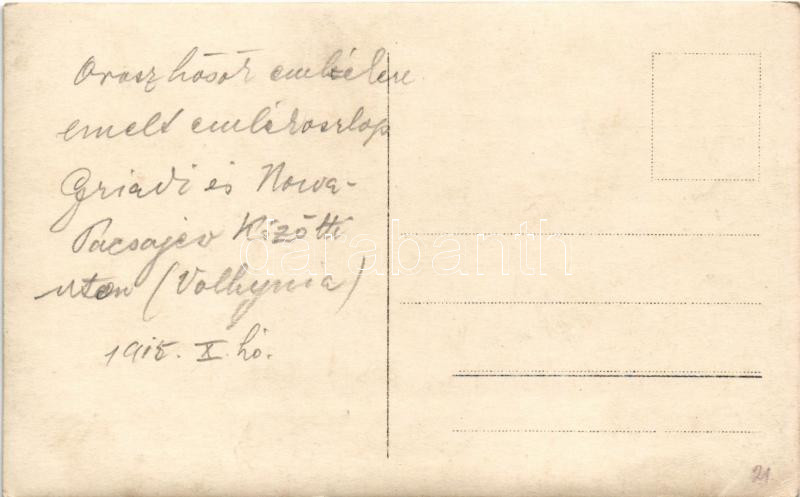 Orosz hősök emlékére
emelt emlékoszlop
Griadi és Nowa-
Pacsajev közötti
uton (Volhynia)
1915. X. hó.
darabanth
21